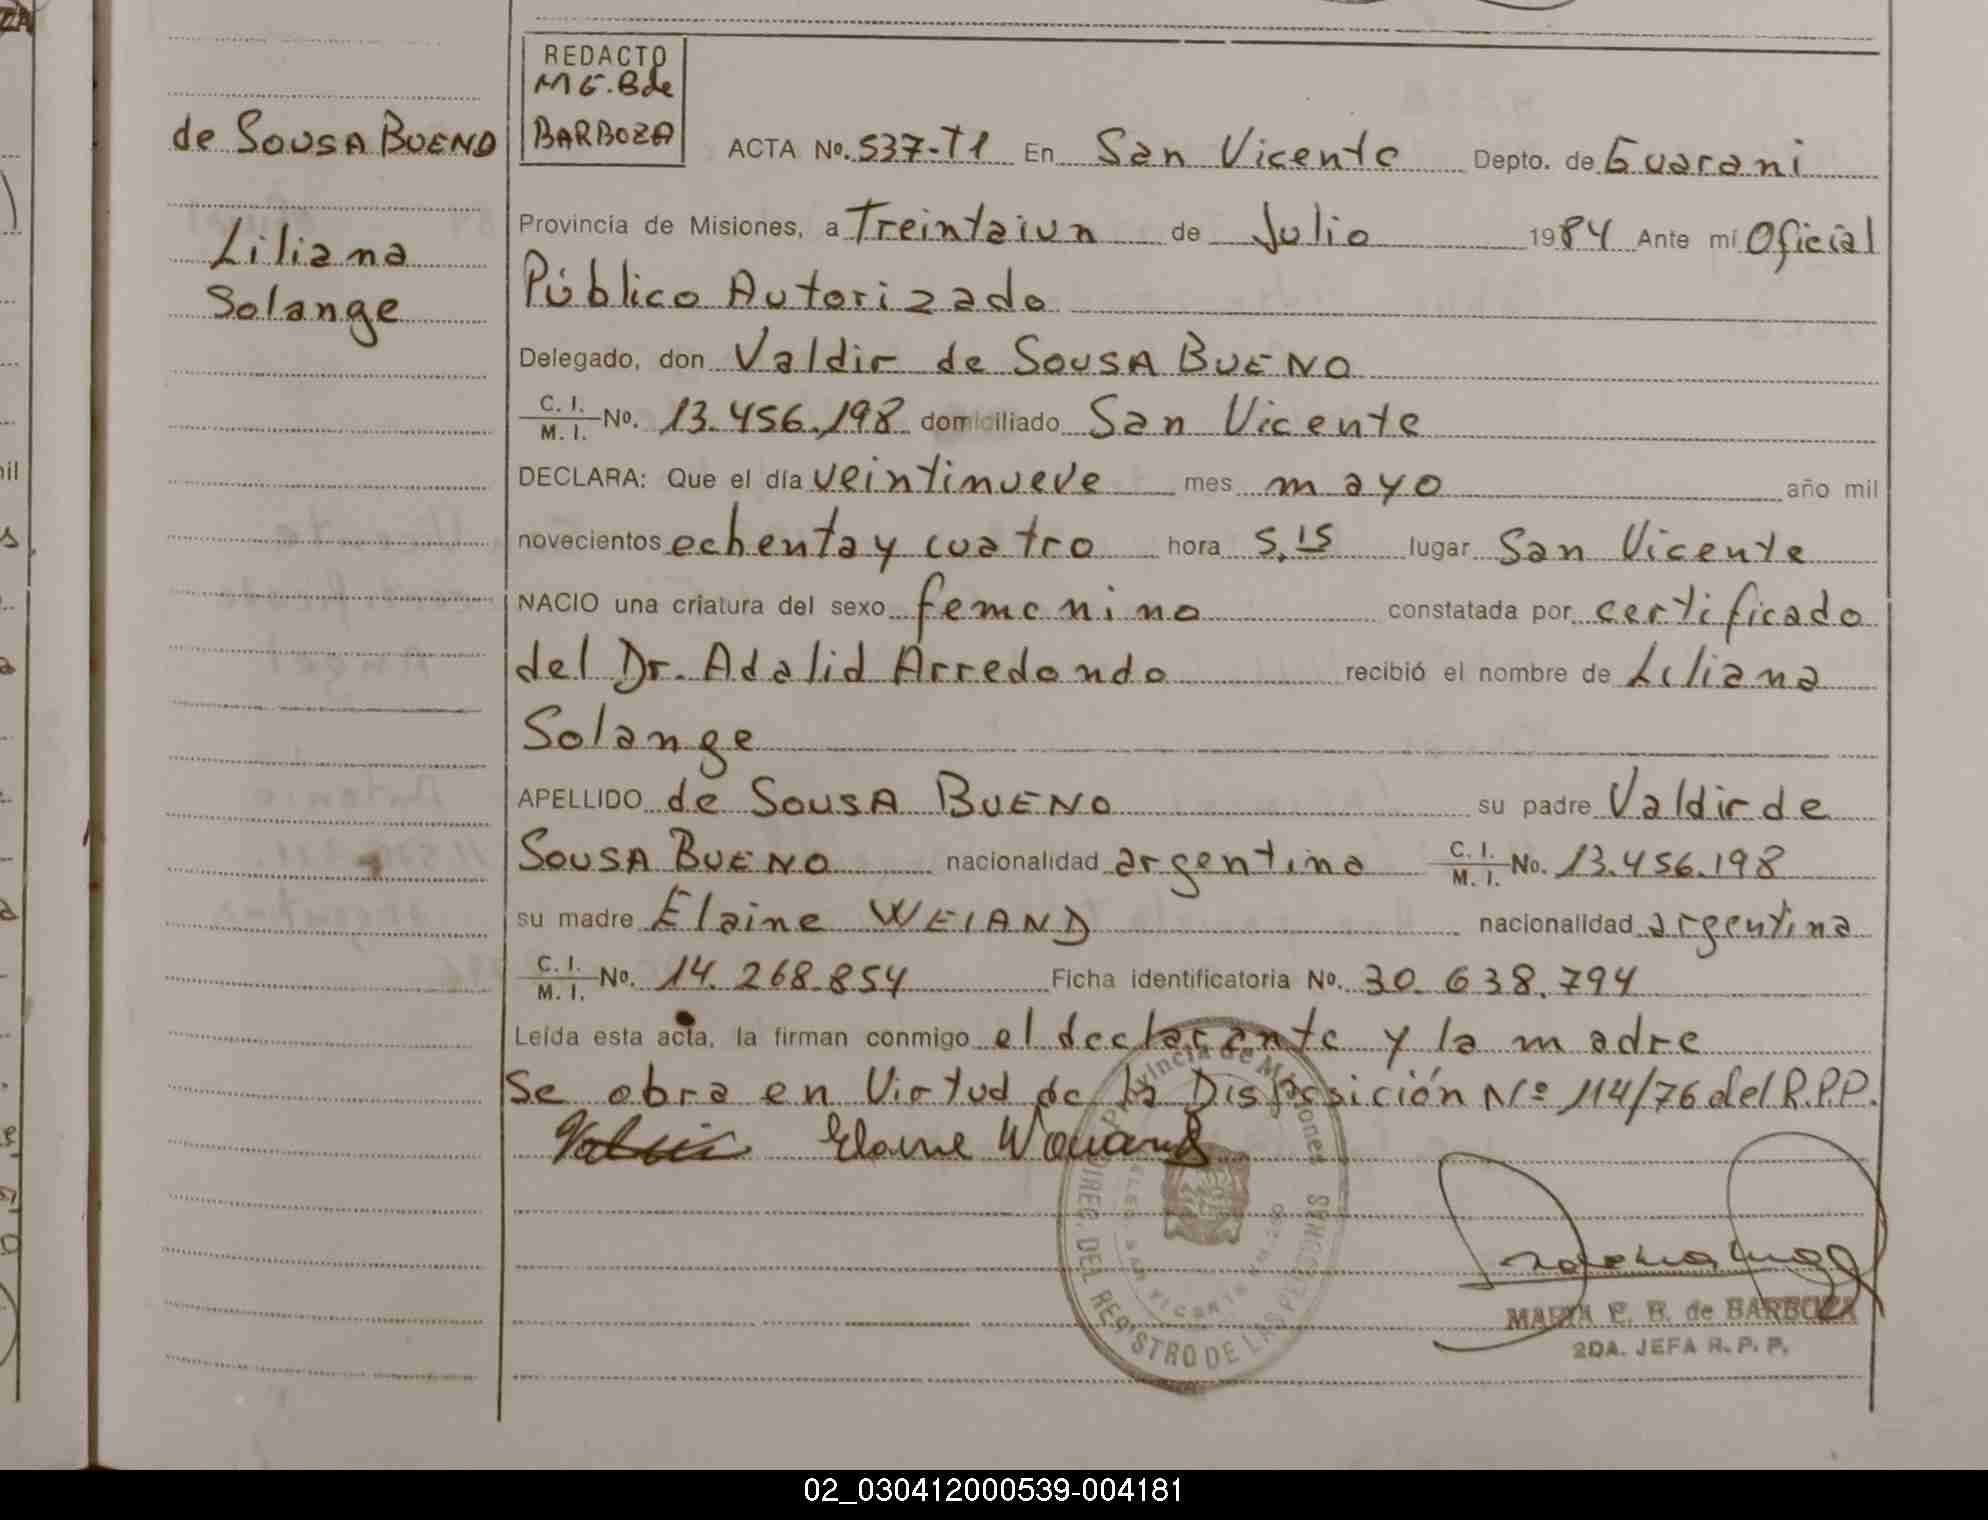 de SOUSA BUENO
Liliana
Solange
REDACTO
M E. B de
BARBOZA
ACTA No. 537-T1 En San Vicente Depto. de Guarani
Provincia de Misiones, a Treintaiun de Julio 1984 Ante mí Oficial
Público Autorizado
Delegado, don Valdir de SOUSA BUENO
C. I. / M. I. No. 13.456.198 domiciliado San Vicente
DECLARA: Que el día veintinueve mes mayo año mil
novecientos ochenta y cuatro hora 5.15 lugar San Vicente
NACIO una criatura del sexo femenino constatada por certificado
del Dr. Adalid Arredondo recibió el nombre de Liliana
Solange
APELLIDO de SOUSA BUENO su padre Valdir de
SOUSA BUENO nacionalidad argentina C. I. / M. I. No. 13.456.198
su madre Elaine WEIAND nacionalidad argentina
C. I. / M. I. No. 14.268.854 Ficha identificatoria No. 30.638.794
Leída esta acta, la firman conmigo el declarante y la madre
Se obra en Virtud de la Disposición Nº 114/76 del R.P.P.
Elaine
Provincia de Misiones
DIREC. DEL REGISTRO DE LAS PERSONAS
MARIA E. B. de BARBOZA
2DA. JEFA R. P. P.
02_030412000539-004181